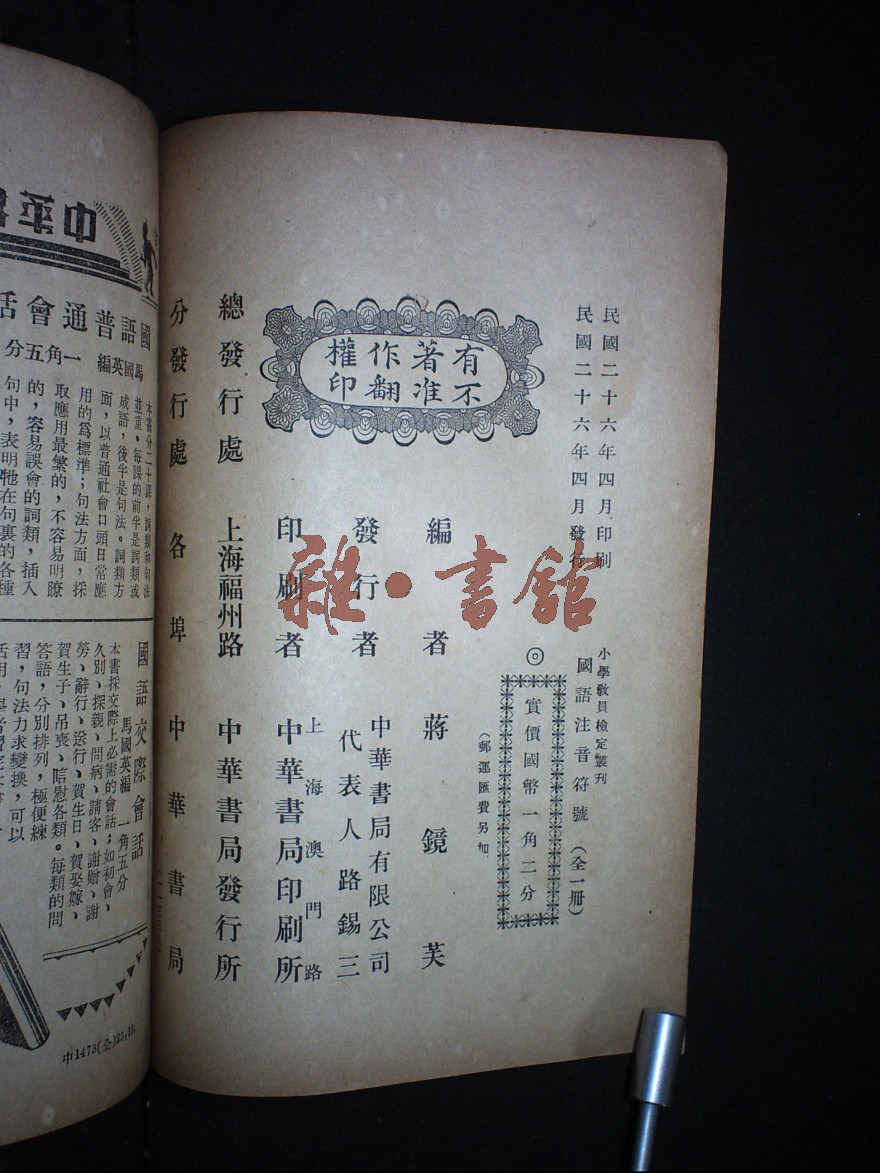 民國二十六年四月印刷
民國二十六年四月發行
小學教員檢定叢刊
國語注音符號（全一册）
◎
實價國幣一角二分
（郵運匯費另加
有著作權
不准翻印
編者 蔣鏡芙
發行者 中華書局有限公司
代表人路錫三
印刷者 上海澳門路
中華書局印刷所
總發行處 上海福州路 中華書局發行所
分發行處 各埠中華書局
雜·書館
中華
國語普通會話
馬國英編 一角五分
本書分二十課，詞類和句法
並重。每課的前半是詞類或
成語，後半是句法。詞類方
面，以普通社會口頭日常應
用的爲標準；句法方面，採
取應用最繁的，不容易明瞭
的，容易誤會的詞類，插入
句中，表明牠在句裏的各種
國語交際會話
馬國英編 一角五分
本書採交際上必需的會話；如初會、
久別、探親、問病、請客、謝贈、謝
勞、辭行、送行、賀生日、賀娶嫁、
賀生子、吊喪、陪慰各類。每類的問
答語，分別排列，極便練
習，句法力求變換，可以
中1473(全)25,10.